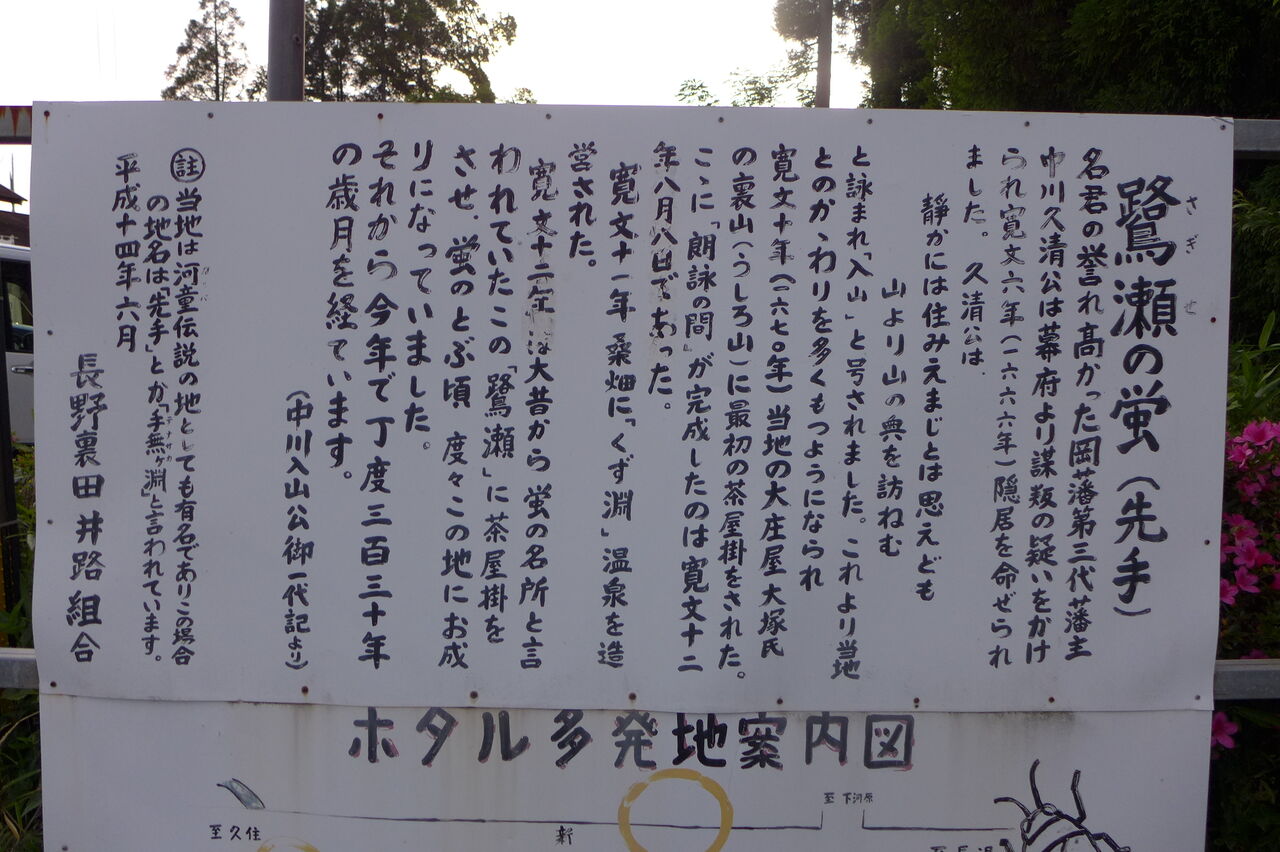 鷺瀬の蛍(先手)
さぎせ
名君の誉れ高かった岡藩第三代藩主
中川久清公は幕府より謀叛の疑いをかけ
られ寛文六年(一六六六年)隠居を命ぜられ
ました。久清公は、
静かには住みえまじとは思えども
山より山の奥を訪ねむ
と詠まれ「入山」と号されました。これより当地
とのかゝわりを多くもつようになられ
寛文十年(一六七〇年)当地の大庄屋大塚氏
の裏山(うしろ山)に最初の茶屋掛をされた。
ここに「朗詠の間」が完成したのは寛文十二
年八月八日であった。
寛文十一年桑畑に「くず淵」温泉を造
営された。
寛文十二年は大昔から蛍の名所と言
われていたこの「鷺瀬」に茶屋掛を
させ、蛍のとぶ頃度々この地にお成
りになっていました。
それから今年で丁度三百三十年
の歳月を経ています。
(中川入山公御一代記より)
註 当地は河童伝説の地としても有名でありこの場合
の地名は「先手」とか「手無ヶ淵」と言われています。
平成十四年六月
長野裏田井路組合
ホタル多発地案内図
至下河原
至久住
新
至長湯